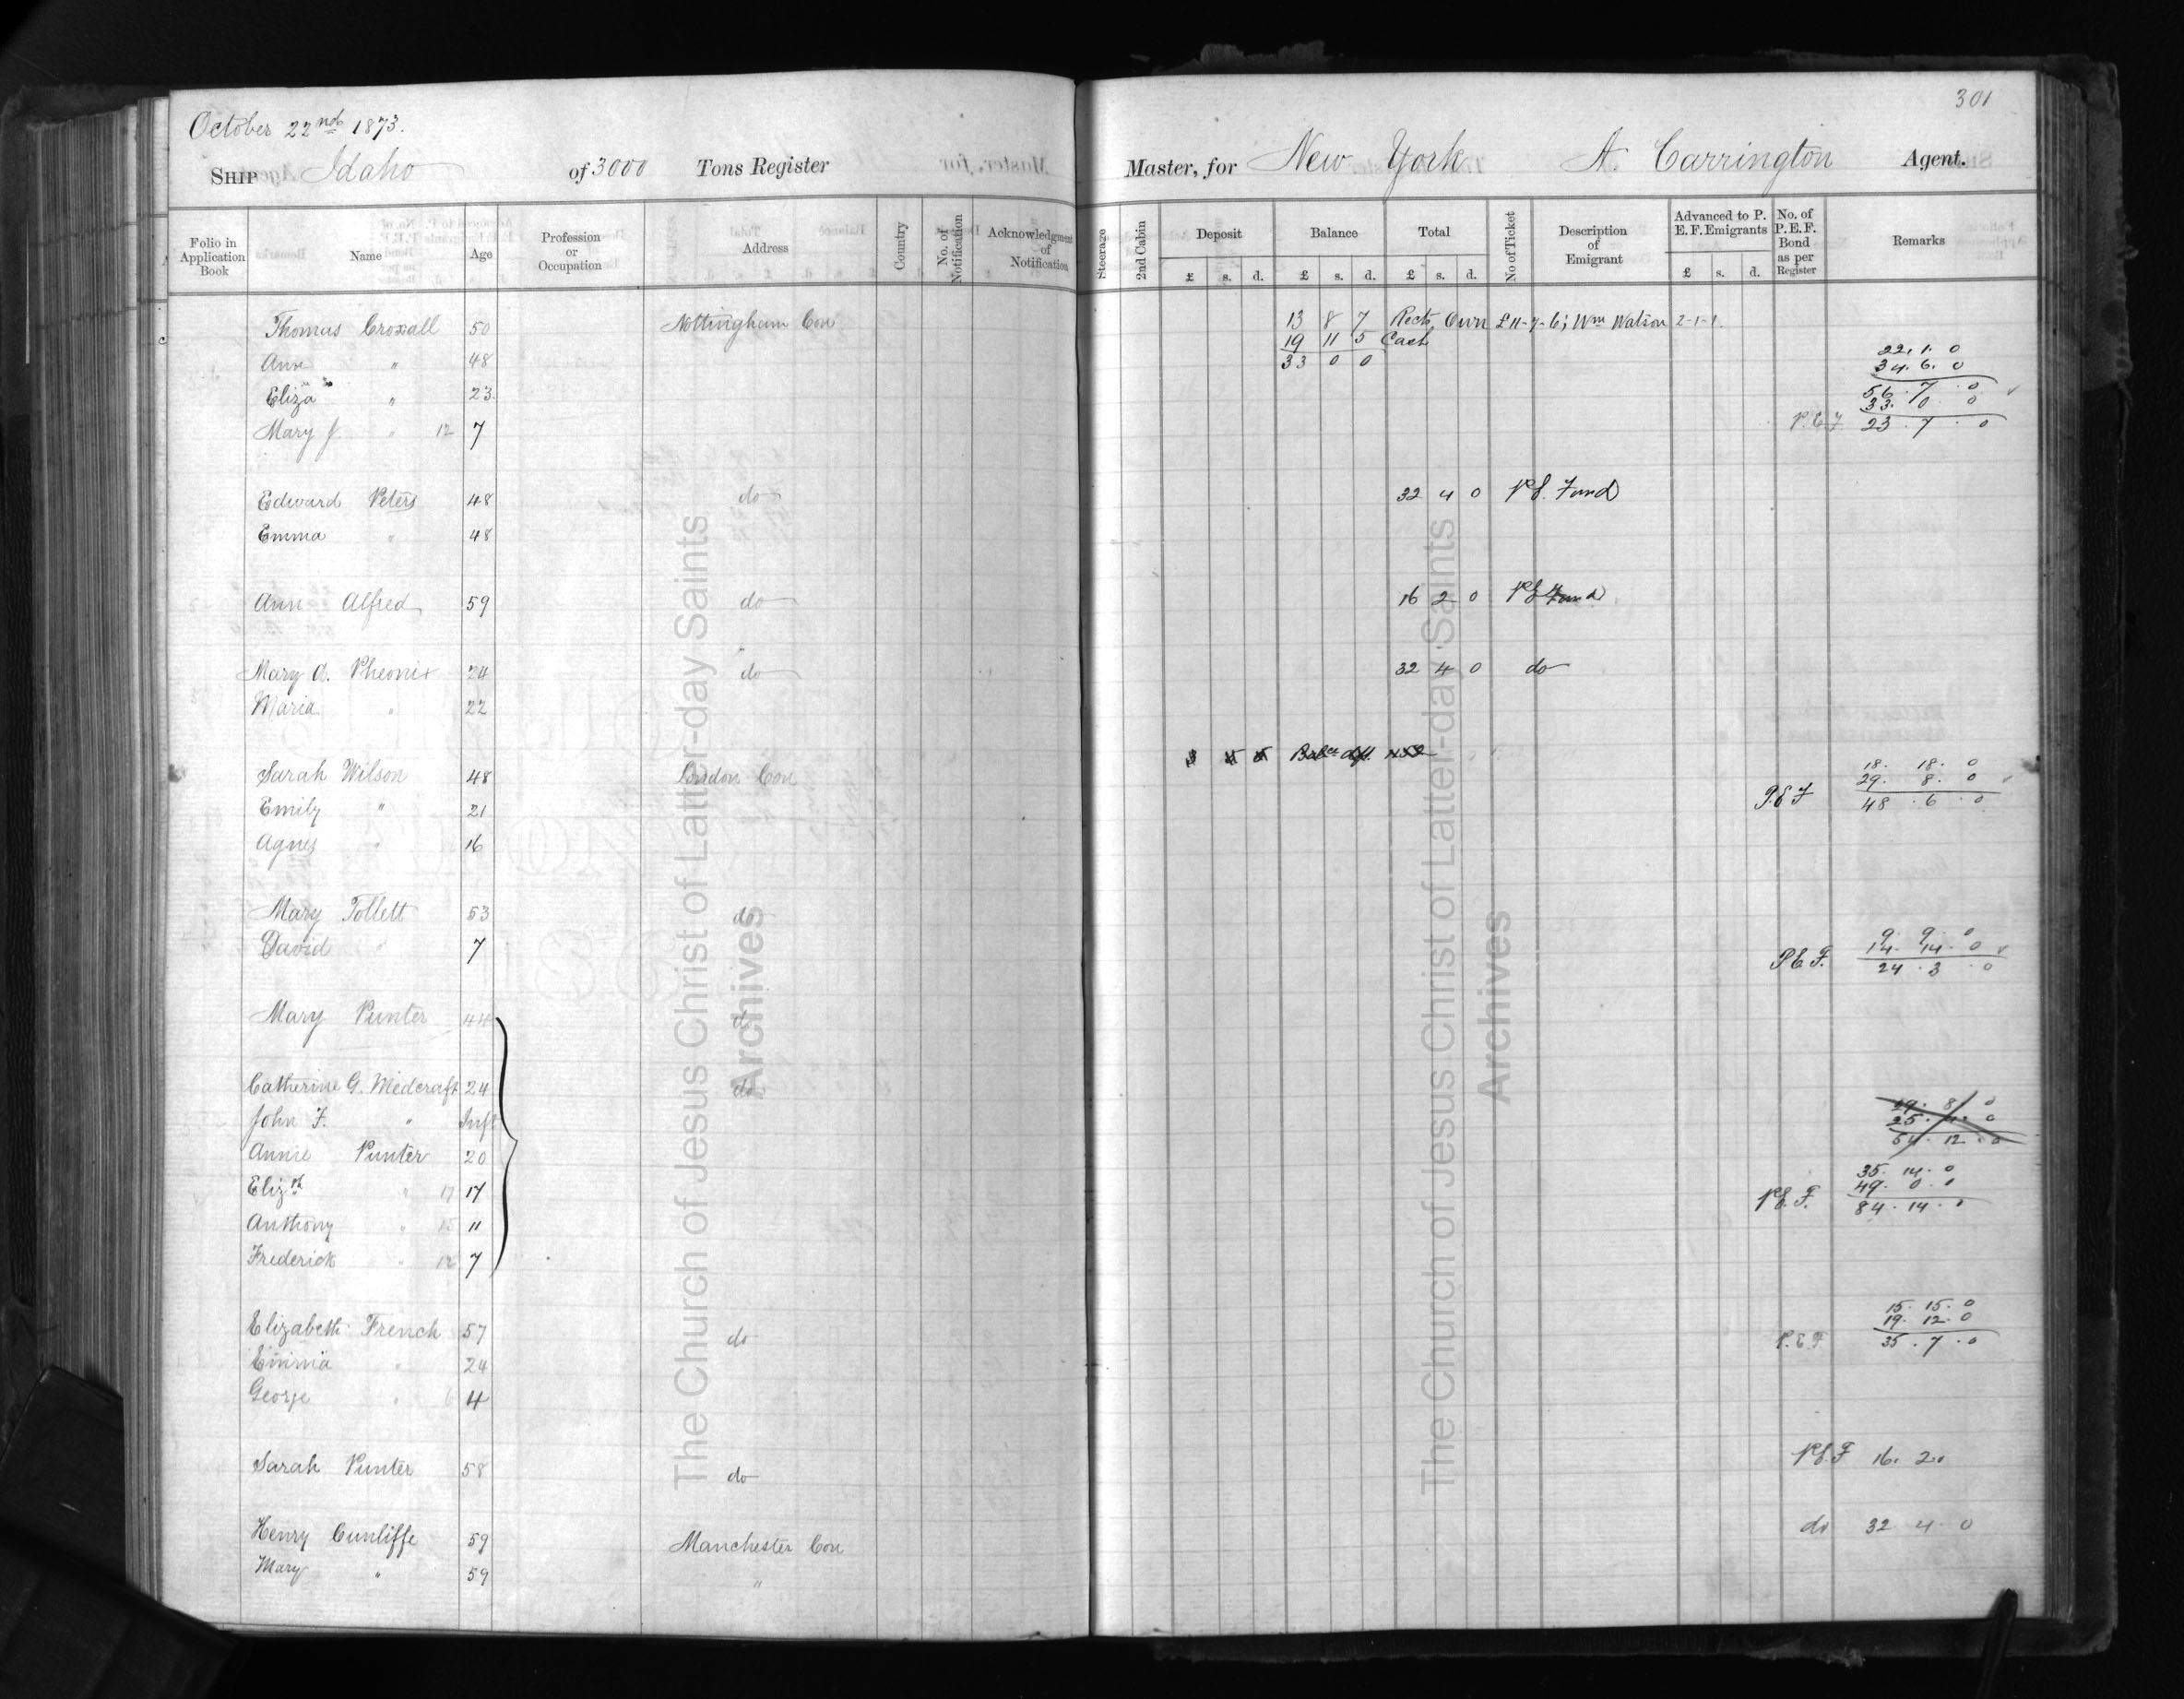 301
October 22nd 1873.
SHIP Idaho of 3000 Tons Register Master, for New York A. Carrington Agent.
Folio in Application Book Name Age Profession or Occupation Address Country No. of Notification Acknowledgment of Notification Steerage 2nd Cabin Deposit £ s. d. Balance £ s. d. Total £ s. d. No of Ticket Description of Emigrant Advanced to P. E. F. Emigrants £ s. d. No. of P.E.F. Bond as per Register Remarks
Thomas Croxall 50 Nottingham Con 13 8 7 Rects. Own £11-7-6; Wm Watson 2-1-1.
19 11 5 Cash
Ann " 48 33 0 0 22. 1. 0
34. 6. 0
Eliza " 23 56. 7. 0
33. 0. 0
Mary J. " 12 7 P.E.F. 23. 7. 0
Edward Peters 48 do 32 4 0 P.E. Fund
Emma " 48
Ann Alfred 59 do 16 2 0 P.E. Fund
Mary A. Pheonix 24 do 32 4 0 do
Maria " 22
Sarah Wilson 48 London Con 18. 18. 0
29. 8. 0
Emily " 21 P.E.F 48. 6. 0
Agnes " 16
Mary Tollett 53 do 9. 9. 0
David " 7 14. 14. 0
P.E.F. 24. 3. 0
Mary Punter 44 do
Catherine G. Medcraft 24 do
John F. " Inft 29. 8. 0
25. 4. 0
54. 12. 0
Annie Punter 20
Elizth " 17 17 35. 14. 0
49. 0. 0
P.E.F. 84. 14. 0
Anthony " 15 11
Frederick " 12 7
Elizabeth French 57 do 15. 15. 0
19. 12. 0
P.E.F 35. 7. 0
Emma " 24
George " 6 4
Sarah Punter 58 do P.E.F 16. 2.
Henry Cunliffe 59 Manchester Con do 32 4 0
Mary " 59 "
The Church of Jesus Christ of Latter-day Saints
Archives
The Church of Jesus Christ of Latter-day Saints
Archives